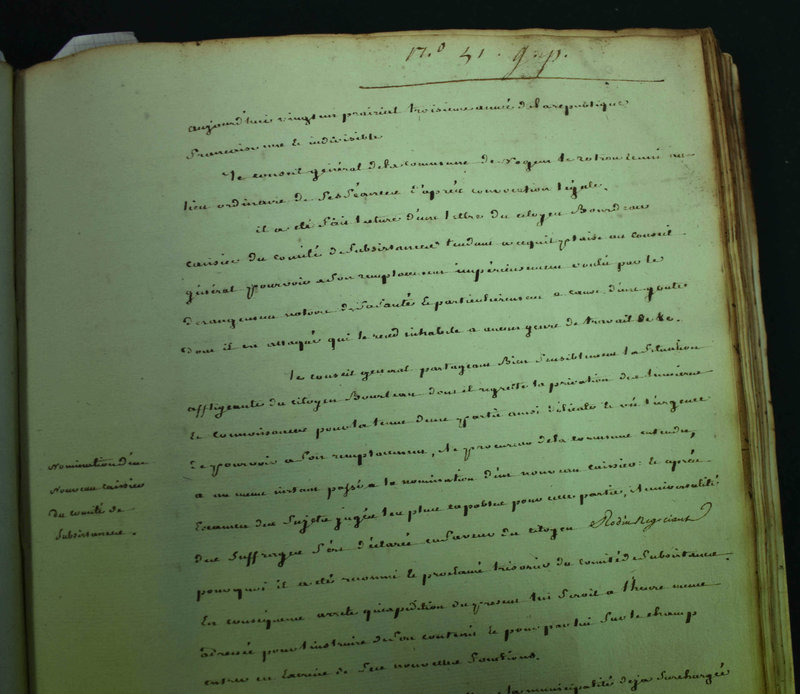 N.º 51. g. p.
aujourd'huis vingt un prairial troisieme année de la republique
francoise une & indivisible
Le conseil général de la Commune de Nogent le rotrou reuni au
lieu ordinaire de ses séances d'après convocation légale.
il a été fait lecture d'une lettre du citoyen Bourdeau
caissier du comité de Subsistances tendant a ce qu'il plaise au conseil
général pourvoir a son remplacement impérieusement voulu par le
derangement notoire de sa santé & particulierement a cause d'une goute
dont il est attaqué qui le rend inhabile a aucun genre de travail &c &c.
Le conseil general partageant Bien sensiblement la Situation
affligeante du citoyen Bourdeau dont il regrette la privation des lumieres
& connoissances pour la tenue d'une partie aussi délicate & vu l'urgence
de pourvoir a son remplacement, Le procureur de la commune entendu,
a au meme instant passé a la nomination d'un nouveau caissier: & après
Examen des Sujets jugés les plus capables pour cette partie, L'universalité
des Suffrages s'est déclarée en faveur du citoyen Rodin Negociant
pourquoi il a été reconnu & proclamé trésorier du comité de Subsistance
En conséquence arrete qu'expédition du present lui Seroit a l'heure meme
adressée pour l'instruire de son contenu & pour par lui Sur le champ
entrer en Exercice de Ses nouvelles fonctions.
la municipalité deja Surchargée
Nomination d'un
Nouveau caissier
du comité de
Subsistances.